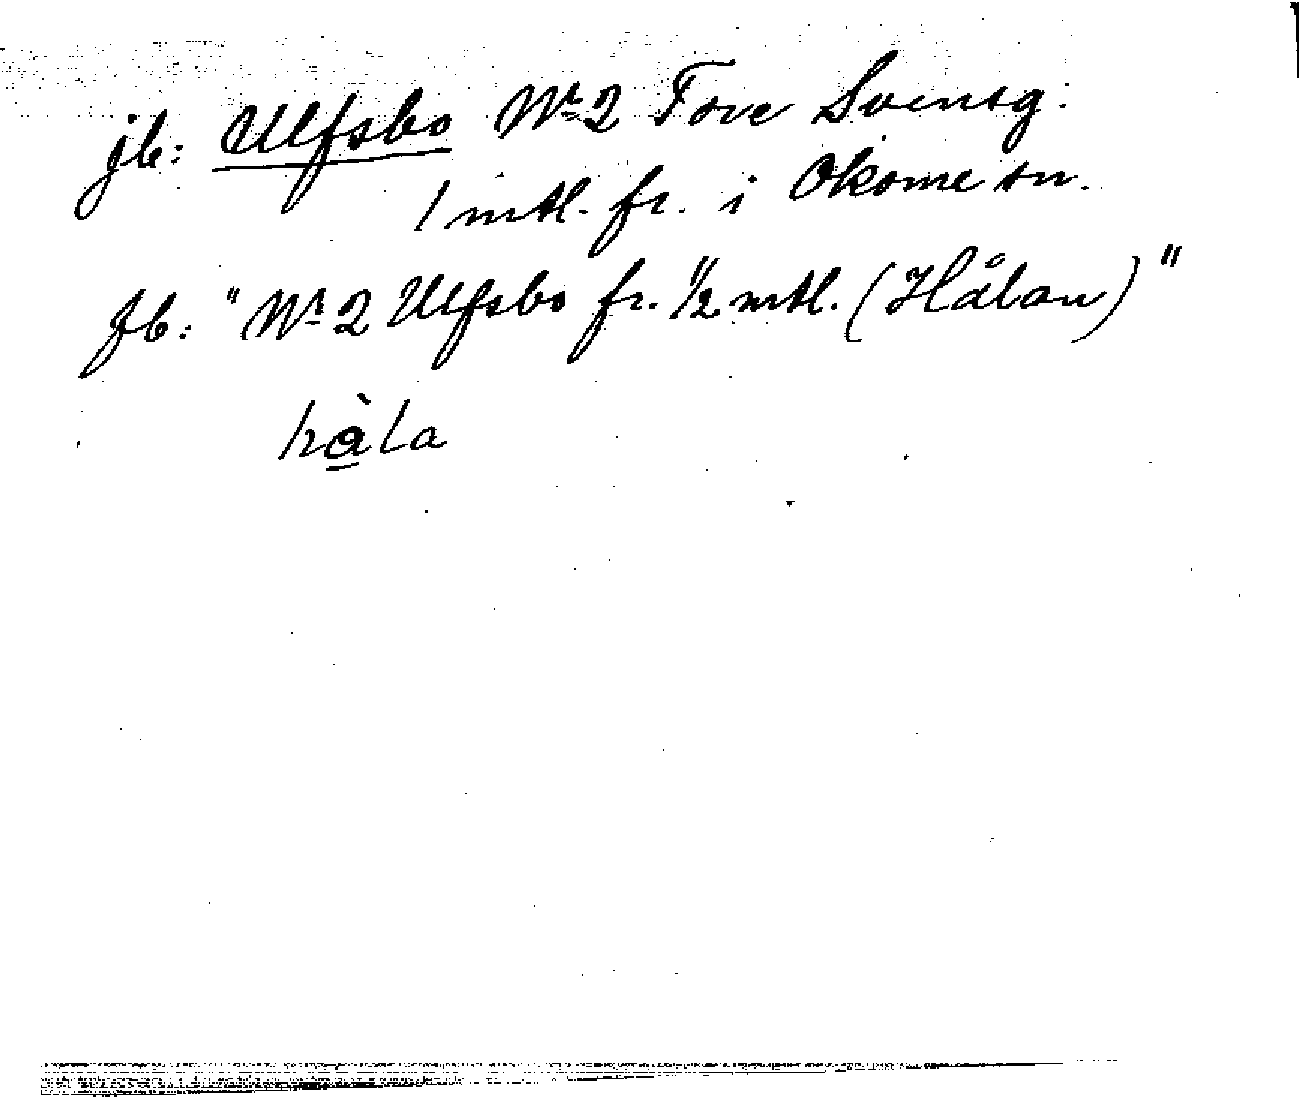 jb: Ulfsbo No 2 Tore Svensg:
1 mtl. fr. i Okome sn.
fb: "No 2 Ulfsbo fr. 1/2 mtl. (Hålan)"
hàla